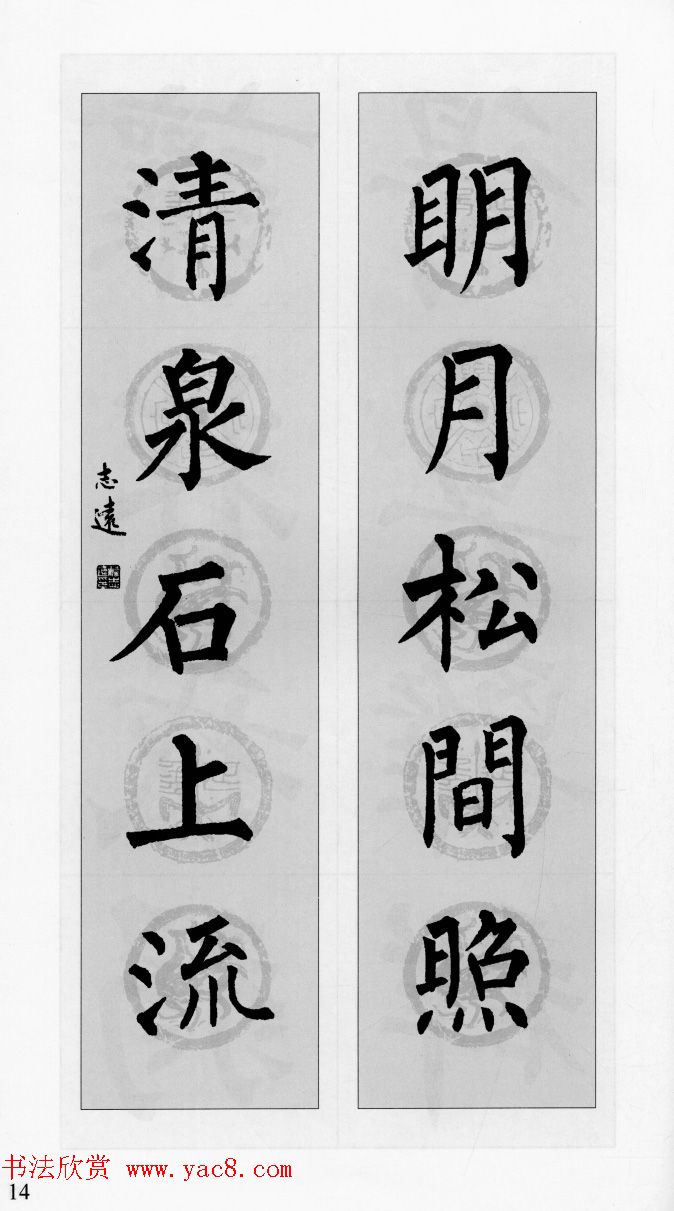 明月松間照
清泉石上流
志遠
书法欣赏 www.yac8.com
14